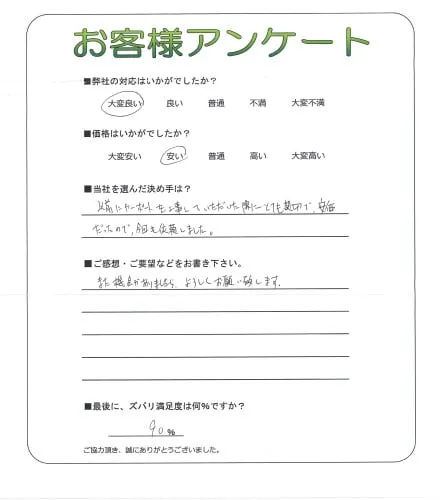 お客様アンケート
■弊社の対応はいかがでしたか?
大変良い 良い 普通 不満 大変不満
■価格はいかがでしたか?
大変安い 安い 普通 高い 大変高い
■当社を選んだ決め手は?
以前にカーポートも工事していただいた際にとても親切で、安価
だったので、今回も依頼しました。
■ご感想・ご要望などをお書き下さい。
また機会がありましたら、よろしくお願い致します。
■最後に、ズバリ満足度は何%ですか?
90%
ご協力頂き、誠にありがとうございました。